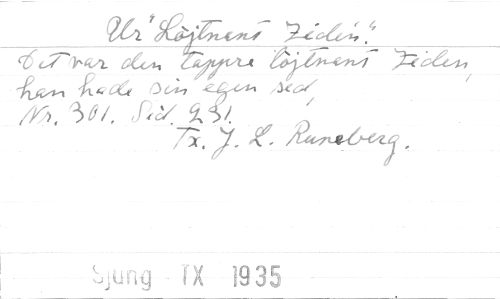 Ur "Löjtnant Zidén".
Det var den tappre löjtnant Ziden,
han hade sin egen sed,
Nr. 301. Sid. 231.
Tx. J. L. Runeberg.
Sjung TX 1935